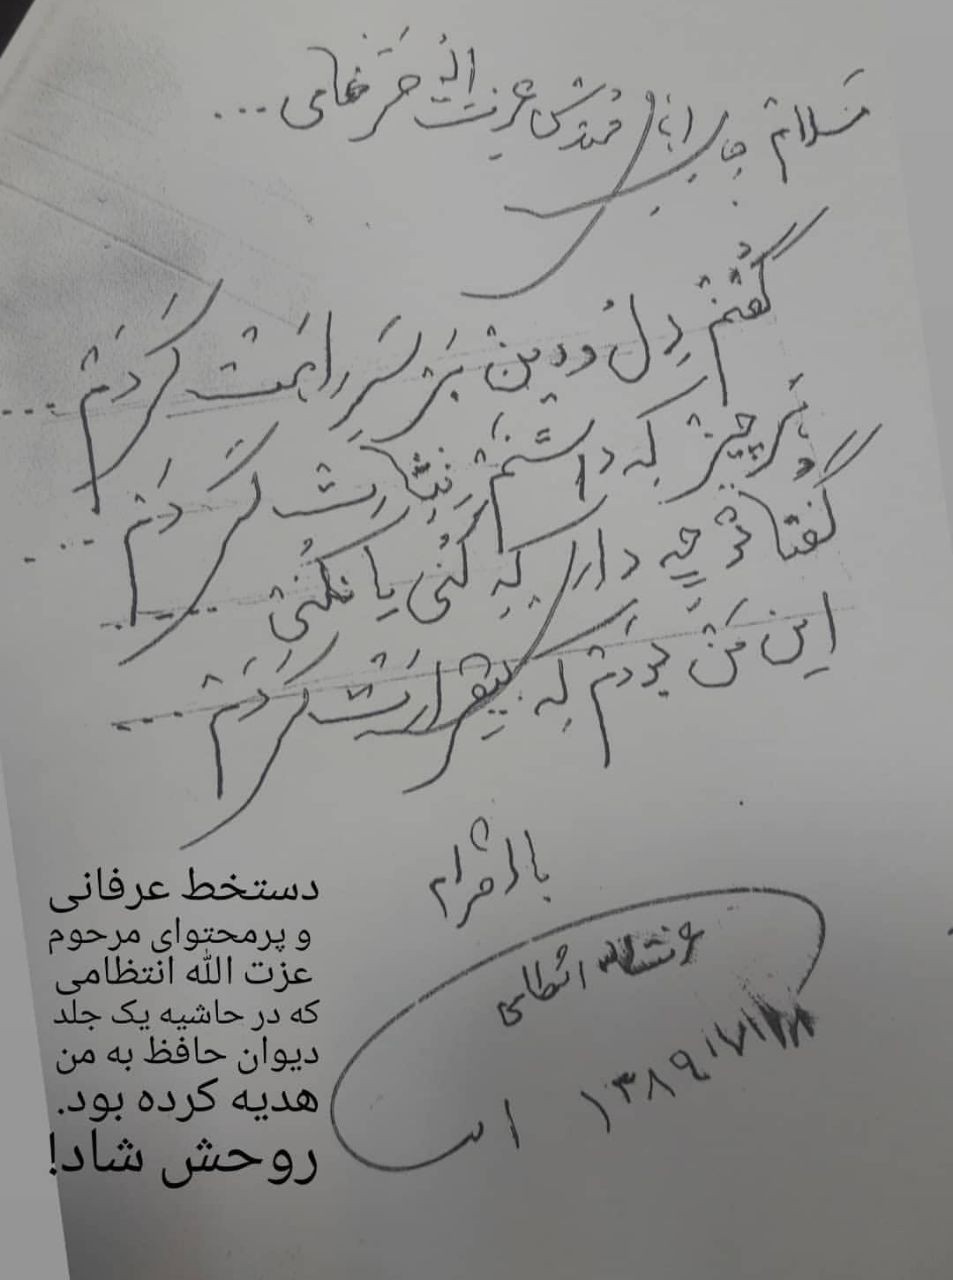 سلام جناب آقای مهندس عزت الله ضرغامی ...
گفتم دل و دین بر سر راهت کردم ...
هر چیز که داشتم نثارت کردم ...
گفتا تو چه داری که کنی یا نکنی ....
این من بودم که بیقرارت کردم ....
با احترام
عزت‌الله انتظامی
۱۳۸۹/۷/
دستخط عرفانی
و پرمحتوای مرحوم
عزت الله انتظامی
که در حاشیه یک جلد
دیوان حافظ به من
هدیه کرده بود.
روحش شاد!